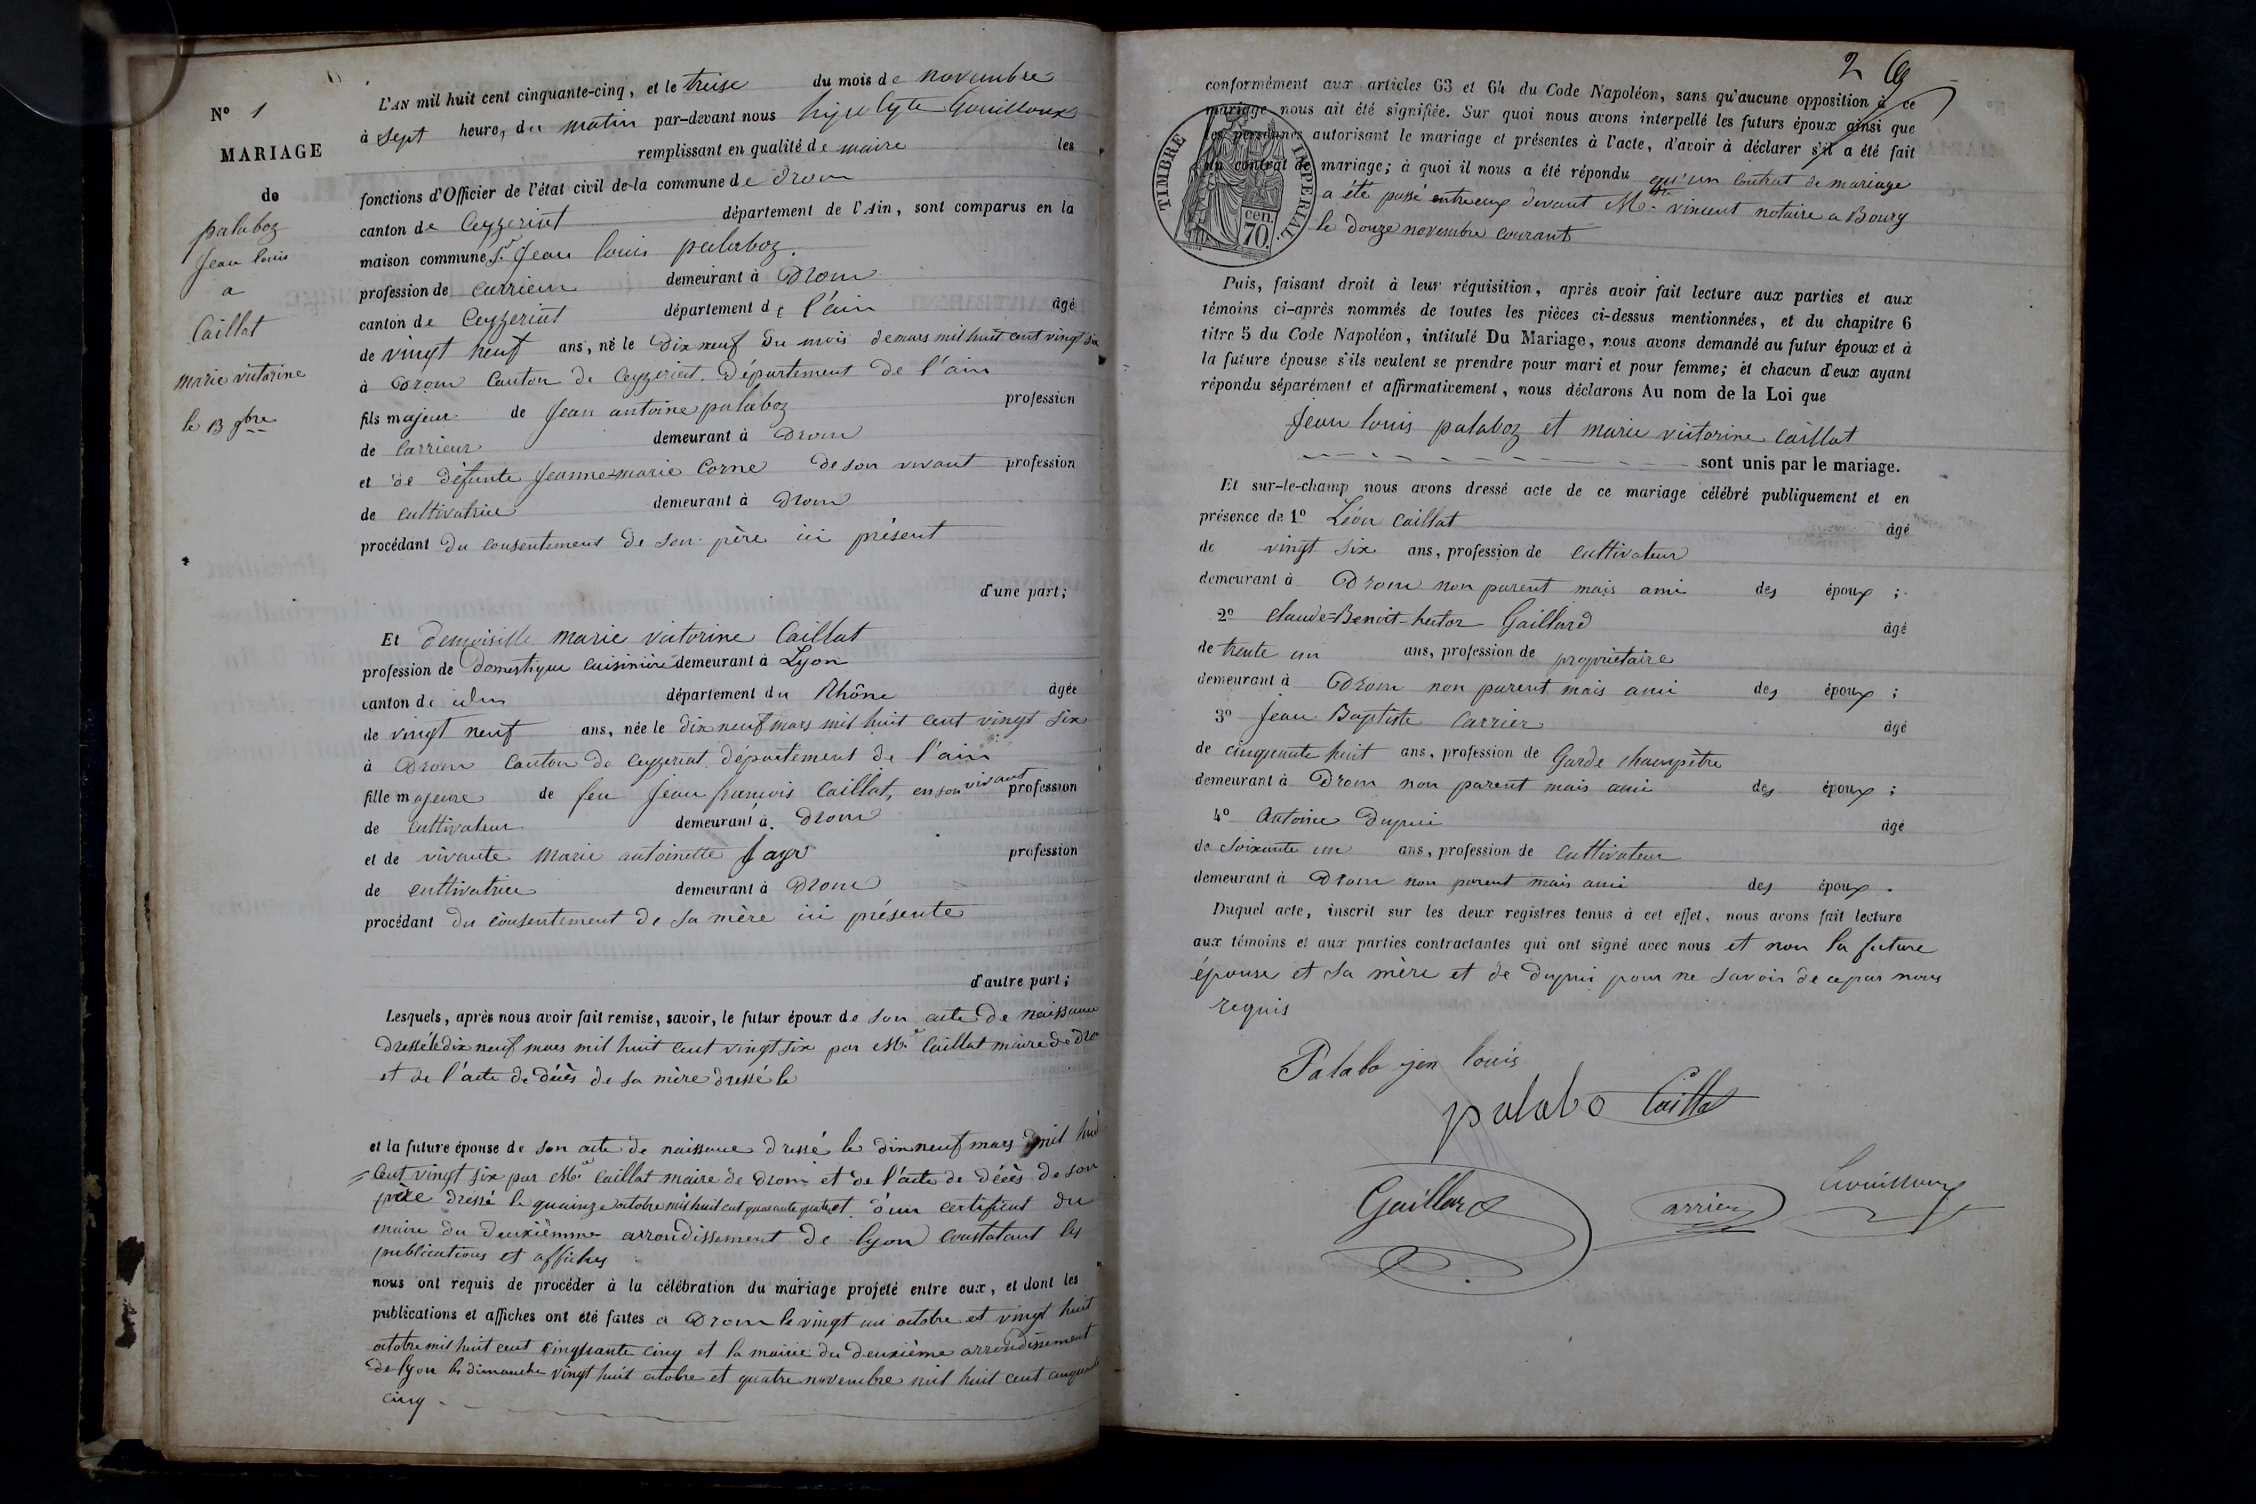 N° 1
MARIAGE
de
palaboz
Jean louis
a
Caillat
marie victorine
le 13 9bre
L'AN mil huit cent cinquante-cinq, et le treise du mois de novembre
à sept heure, du matin par-devant nous hypolyte Gouilloux
remplissant en qualité de maire les
fonctions d'Officier de l'état civil de la commune de Drom
canton de Ceyzeriat département de l'Ain, sont comparus en la
maison commune Sr Jean louis palaboz
profession de carrieur demeurant à Drom
canton de Ceyzeriat département de l'ain âgé
de vingt neuf ans, né le dix neuf du mois de mars mil huit cent vingt six
à Drom Canton de Ceyzeriat. Département de l'ain
fils majeur de Jean antoine palaboz profession
de Carrieur demeurant à Drom
et de défunte Jeanne-marie Corne de son vivant profession
de cultivatrice demeurant à Drom
procédant du consentement de son père ici présent
d'une part;
Et demoiselle marie victorine Caillat
profession de Domestique cuisinière demeurant à Lyon
canton de département du Rhône âgée
de vingt neuf ans, née le dix neuf mars mil huit cent vingt six
à Drom Canton de Ceyzeriat département de l'ain
fille majeure de feu Jean françois Caillat, en son vivant profession
de cultivateur demeurant à Drom
et de vivante marie antoinette profession
de cultivatrice demeurant à Drom
procédant du consentement de sa mère ici présente
d'autre part;
Lesquels, après nous avoir fait remise, savoir, le futur époux de son acte de naissance
dressé le dix neuf mars mil huit cent vingt six par Mr Caillat maire de Dro
et de l'acte de décès de sa mère dressé le
et la future épouse de son acte de naissance dressé le dix neuf mars mil huit
cent vingt six par Mr Caillat maire de Drom et de l'acte de décès de son
père dressé le quainze octobre mil huit cent quarante quatre et d'un certificat du
maire du deuxièmme arrondissement de lyon constatant les
publications et affiches
nous ont requis de procéder à la célébration du mariage projeté entre eux, et dont les
publications et affiches ont été faites a Drom le vingt un octobre et vingt huit
octobre mil huit cent cinquante cinq et la mairie du deuxième arrondissement
de lyon les dimanche vingt huit octobre et quatre novembre mil huit cent cinquante
cinq
2
conformément aux articles 63 et 64 du Code Napoléon, sans qu'aucune opposition à ce
mariage nous ait été signifiée. Sur quoi nous avons interpellé les futurs époux ainsi que
les personnes autorisant le mariage et présentes à l'acte, d'avoir à déclarer s'il a été fait
un contrat de mariage; à quoi il nous a été répondu qu'un contrat de mariage
a été passé entre eux devant Me vincent notaire a Bourg
le douze novembre courant
TIMBRE IMPERIAL.
cen.
70.
Puis, faisant droit à leur réquisition, après avoir fait lecture aux parties et aux
témoins ci-après nommés de toutes les pièces ci-dessus mentionnées, et du chapitre 6
titre 5 du Code Napoléon, intitulé Du Mariage, nous avons demandé au futur époux et à
la future épouse s'ils veulent se prendre pour mari et pour femme; et chacun d'eux ayant
répondu séparément et affirmativement, nous déclarons Au nom de la Loi que
Jean louis palaboz et marie victorine caillat
sont unis par le mariage.
Et sur-le-champ nous avons dressé acte de ce mariage célébré publiquement et en
présence de 1° Léon Caillat âgé
de vingt six ans, profession de cultivateur
demeurant à Drom non parent mais ami des époux ;
2° Claude-Benoit-hector Gaillard âgé
de trente un ans, profession de propriétaire
demeurant à Drom non parent mais ami des époux ;
3° Jean Baptiste Carrier âgé
de cinquante huit ans, profession de Garde champêtre
demeurant à Drom non parent mais ami des époux ;
4° Antoine Dupui âgé
de soixante un ans, profession de cultivateur
demeurant à Drom non parent mais ami des époux .
Duquel acte, inscrit sur les deux registres tenus à cet effet, nous avons fait lecture
aux témoins et aux parties contractantes qui ont signé avec nous et non la future
épouse et sa mère et de dupui pour ne savoir de ce par nous
requis
Palabo jen louis
palabo Caillat
Gaillard
arrier
Gouilloux